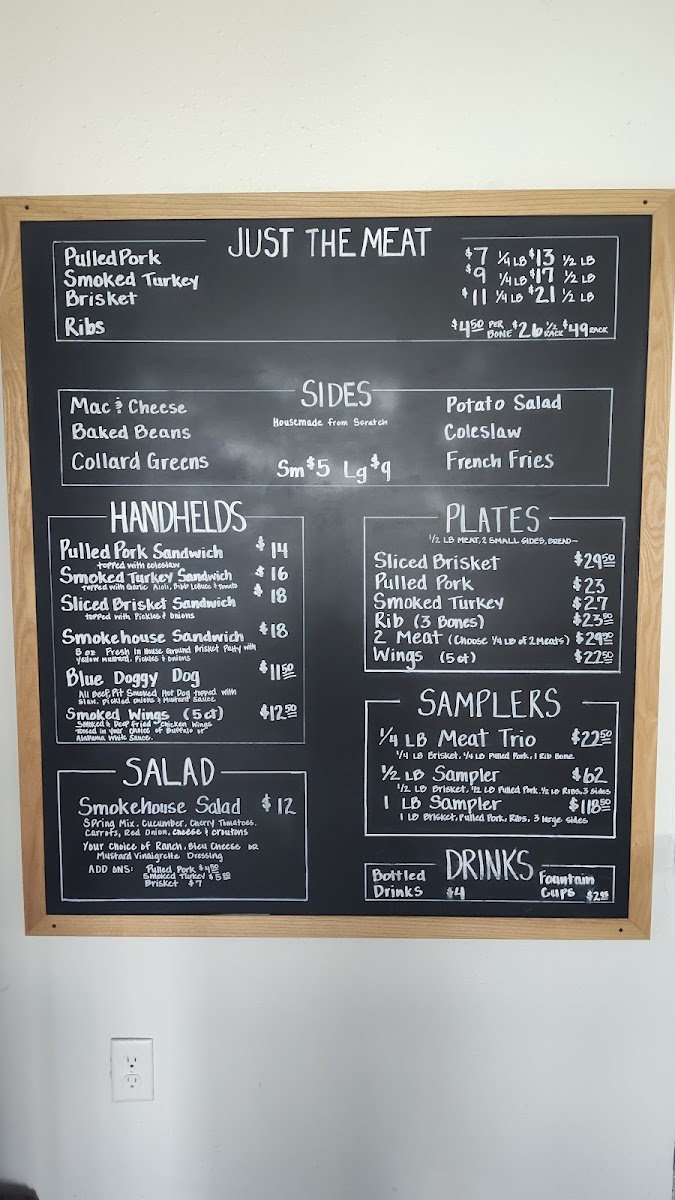 JUST THE MEAT
Pulled Pork $7 1/4 LB $13 1/2 LB
Smoked Turkey $9 1/4 LB $17 1/2 LB
Brisket $11 1/4 LB $21 1/2 LB
Ribs $4.50 PER BONE $26 1/2 RACK $49 RACK
SIDES
Housemade from Scratch
Mac & Cheese
Baked Beans
Collard Greens
Sm $5 Lg $9
Potato Salad
Coleslaw
French Fries
HANDHELDS
Pulled Pork Sandwich $14
topped with coleslaw
Smoked Turkey Sandwich $16
Topped with Garlic Aioli, Bibb Lettuce & Tomato
Sliced Brisket Sandwich $18
topped with Pickles & Onions
Smokehouse Sandwich $18
8 oz Fresh In House Ground Brisket Patty with
Yellow Mustard, Pickles & Onions
Blue Doggy Dog $11.50
All Beef, Pit Smoked Hot Dog topped with
Slaw, Pickled Onions & Mustard Sauce
Smoked Wings (5ct) $12.50
Smoked & Deep Fried Chicken Wings
tossed in your choice of Buffalo or
Alabama White Sauce.
SALAD
Smokehouse Salad $12
Spring Mix, Cucumber, Cherry Tomatoes,
Carrots, Red Onion, cheese & croutons
Your Choice of Ranch, Bleu Cheese OR
Mustard Vinaigrette Dressing
ADD ONS: Pulled Pork $4.50
Smoked Turkey $5.50
Brisket $7
PLATES
1/2 LB MEAT, 2 SMALL SIDES, BREAD~
Sliced Brisket $29.50
Pulled Pork $23
Smoked Turkey $27
Rib (3 Bones) $23.50
2 Meat (Choose 1/4 LB of 2 Meats) $29.50
Wings (5ct) $22.50
SAMPLERS
1/4 LB Meat Trio $22.50
1/4 LB Brisket, 1/4 LB Pulled Pork, 1 Rib Bone
1/2 LB Sampler $62
1/2 LB Brisket, 1/2 LB Pulled Pork, 1/2 LB Ribs, 3 sides
1 LB Sampler $118.50
1 LB Brisket, Pulled Pork, Ribs, 3 large sides
DRINKS
Bottled Drinks $4
Fountain Cups $2.95